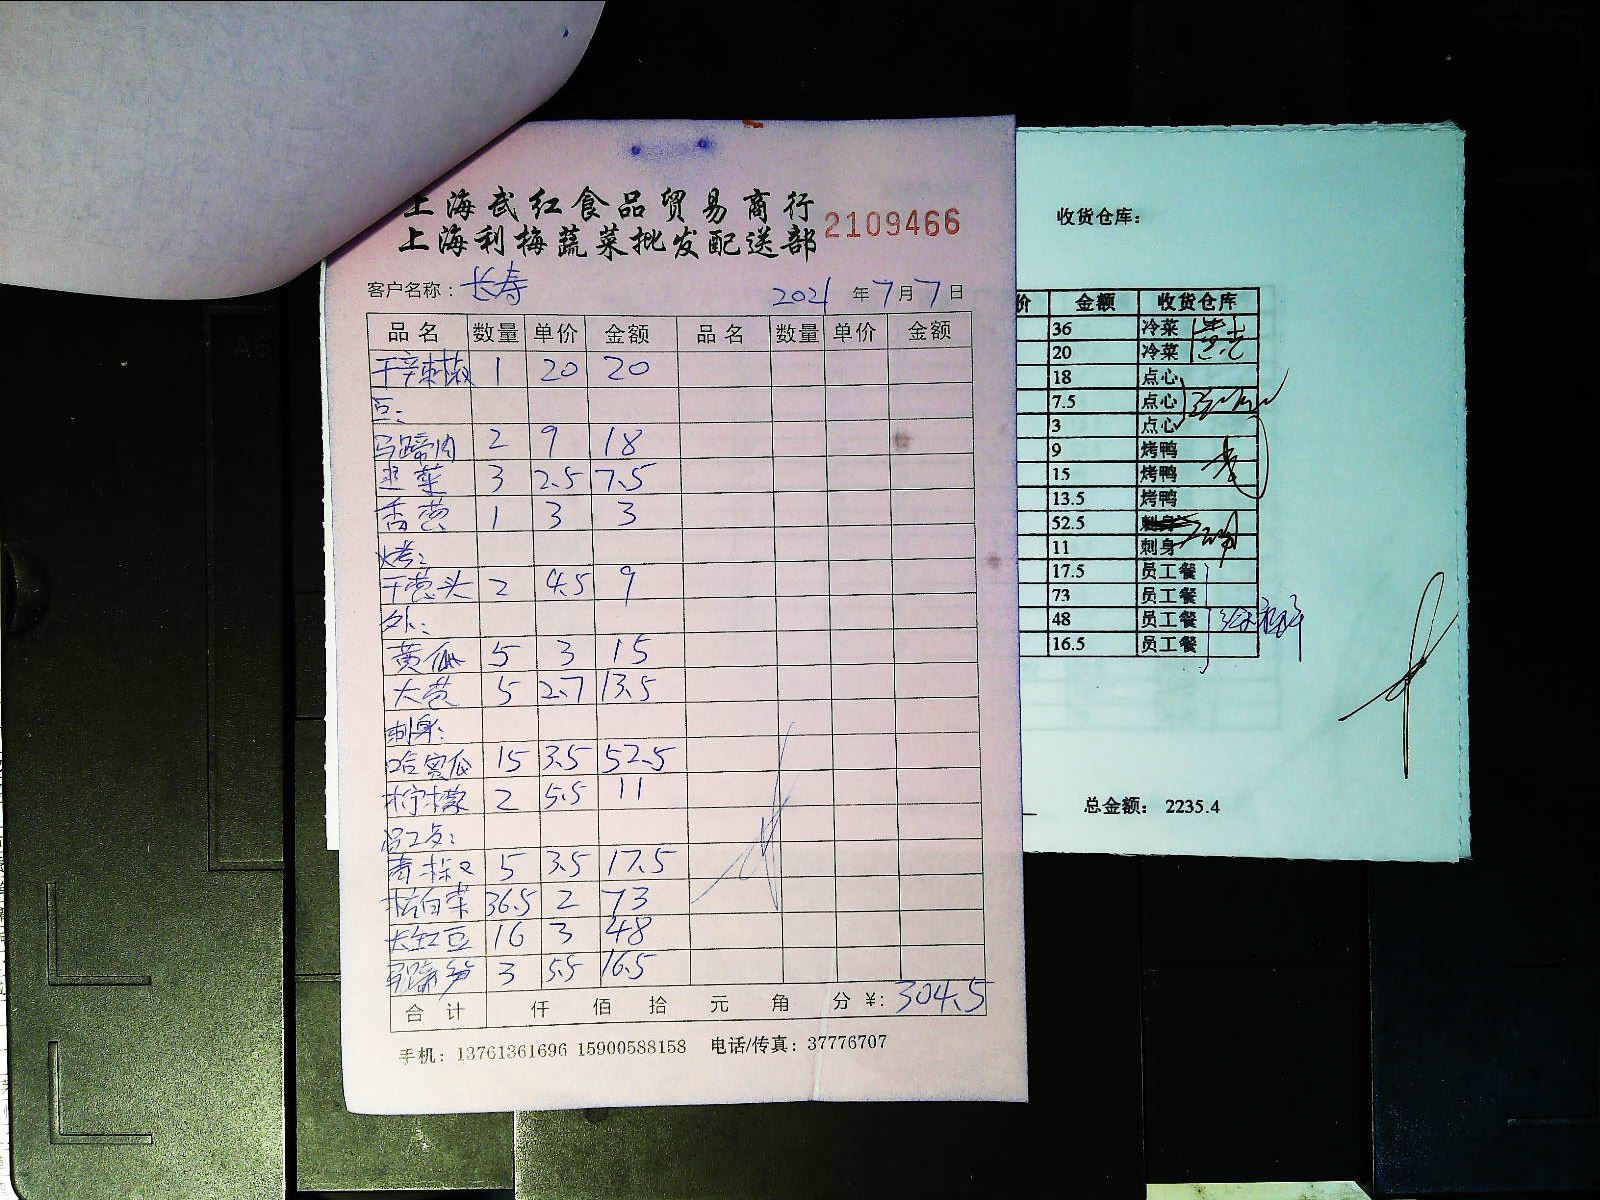 上海武红食品贸易商行
上海利梅蔬菜批发配送部 2109466
客户名称： 长寿 2021 年 7 月 7 日
品名 数量 单价 金额 品名 数量 单价 金额
干辣椒 1 20 20
豆：
马蹄肉 2 9 18
韭菜 3 2.5 7.5
香葱 1 3 3
烤：
干葱头 2 4.5 9
外：
黄瓜 5 3 15
大葱 5 2.7 13.5
刺身：
哈密瓜 15 3.5 52.5
柠檬 2 5.5 11
员工:
5 3.5 17.5
白菜 36.5 2 73
长豇豆 16 3 48
3 5.5 16.5
合计 仟 佰 拾 元 角 分 ¥: 304.5
手机：13761361696 15900588158 电话/传真：37776707
收货仓库：
价 金额 收货仓库
36 冷菜
20 冷菜
18 点心
7.5 点心
3 点心
9 烤鸭
15 烤鸭
13.5 烤鸭
52.5 刺身
11 刺身
17.5 员工餐
73 员工餐
48 员工餐
16.5 员工餐
总金额： 2235.4
A6